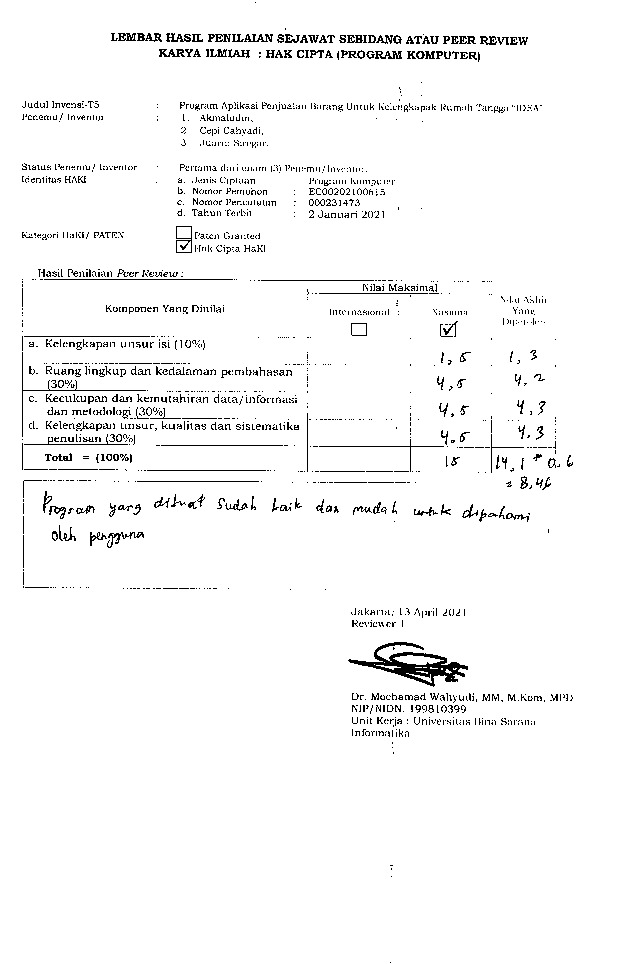 LEMBAR HASIL PENILAIAN SEJAWAT SEBIDANG ATAU PEER REVIEW
KARYA ILMIAH : HAK CIPTA (PROGRAM KOMPUTER)
Judul Invensi-T5 : Program Aplikasi Penjualan Barang Untuk Kelengkapak Rumah Tangga "IDEA"
Penemu/ Inventor : 1. Akmaludin,
2 Cepi Cahyadi,
3 Juarni Siregar.
Status Penemu/ Inventor : Pertama dari enam (3) Penemu/Inventor.
Identitas HAKI : a. Jenis Ciptaan : Program Komputer
b. Nomor Pemohon : EC00202100615
c. Nomor Pencatatan : 000231473
d. Tahun Terbit : 2 Januari 2021
Kategori HaKI/ PATEN Paten Granted
Hak Cipta HaKI
Hasil Penilaian Peer Review :
Komponen Yang Dinilai Nilai Maksimal Nilai Akhir Yang Diperoleh
Internasional Nasional
a. Kelengkapan unsur isi (10%) 1,5 1,3
b. Ruang lingkup dan kedalaman pembahasan
(30%) 4,5 4,2
c. Kecukupan dan kemutahiran data/informasi
dan metodologi (30%) 4,5 4,3
d. Kelengkapan unsur, kualitas dan sistematika
penulisan (30%) 4.5 4.3
Total = (100%) 15 14,1 * 0,6
= 8,46
Program yang dibuat sudah baik dan mudah untuk dipahami
oleh pengguna
Jakarta, 13 April 2021
Reviewer 1
Dr. Mochamad Wahyudi, MM, M.Kom, MPD
NIP/NIDN. 199810399
Unit Kerja : Universitas Bina Sarana
Informatika